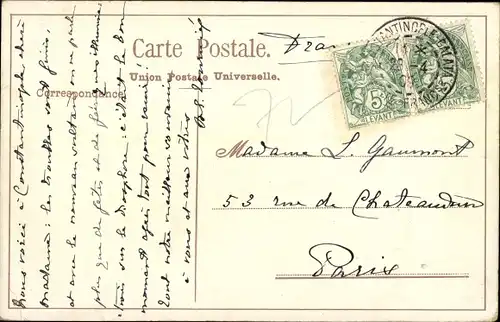 Carte Postale.
Union Postale Universelle.
Correspondance
France
CONSTANTINOPLE
5
LEVANT
LEVANT
Madame L. Gaumont
53 rue de Chateaudun
Paris
Nous voici à Constantinople chère
Madame; les troubles sont finis,
et avec le nouveau sultan on ne parle
plus que de fêtes et de
sur le Bosphore: c'était le bon
moment après tout pour venir!
Tout notre meilleur souvenir
à vous et aux vôtres